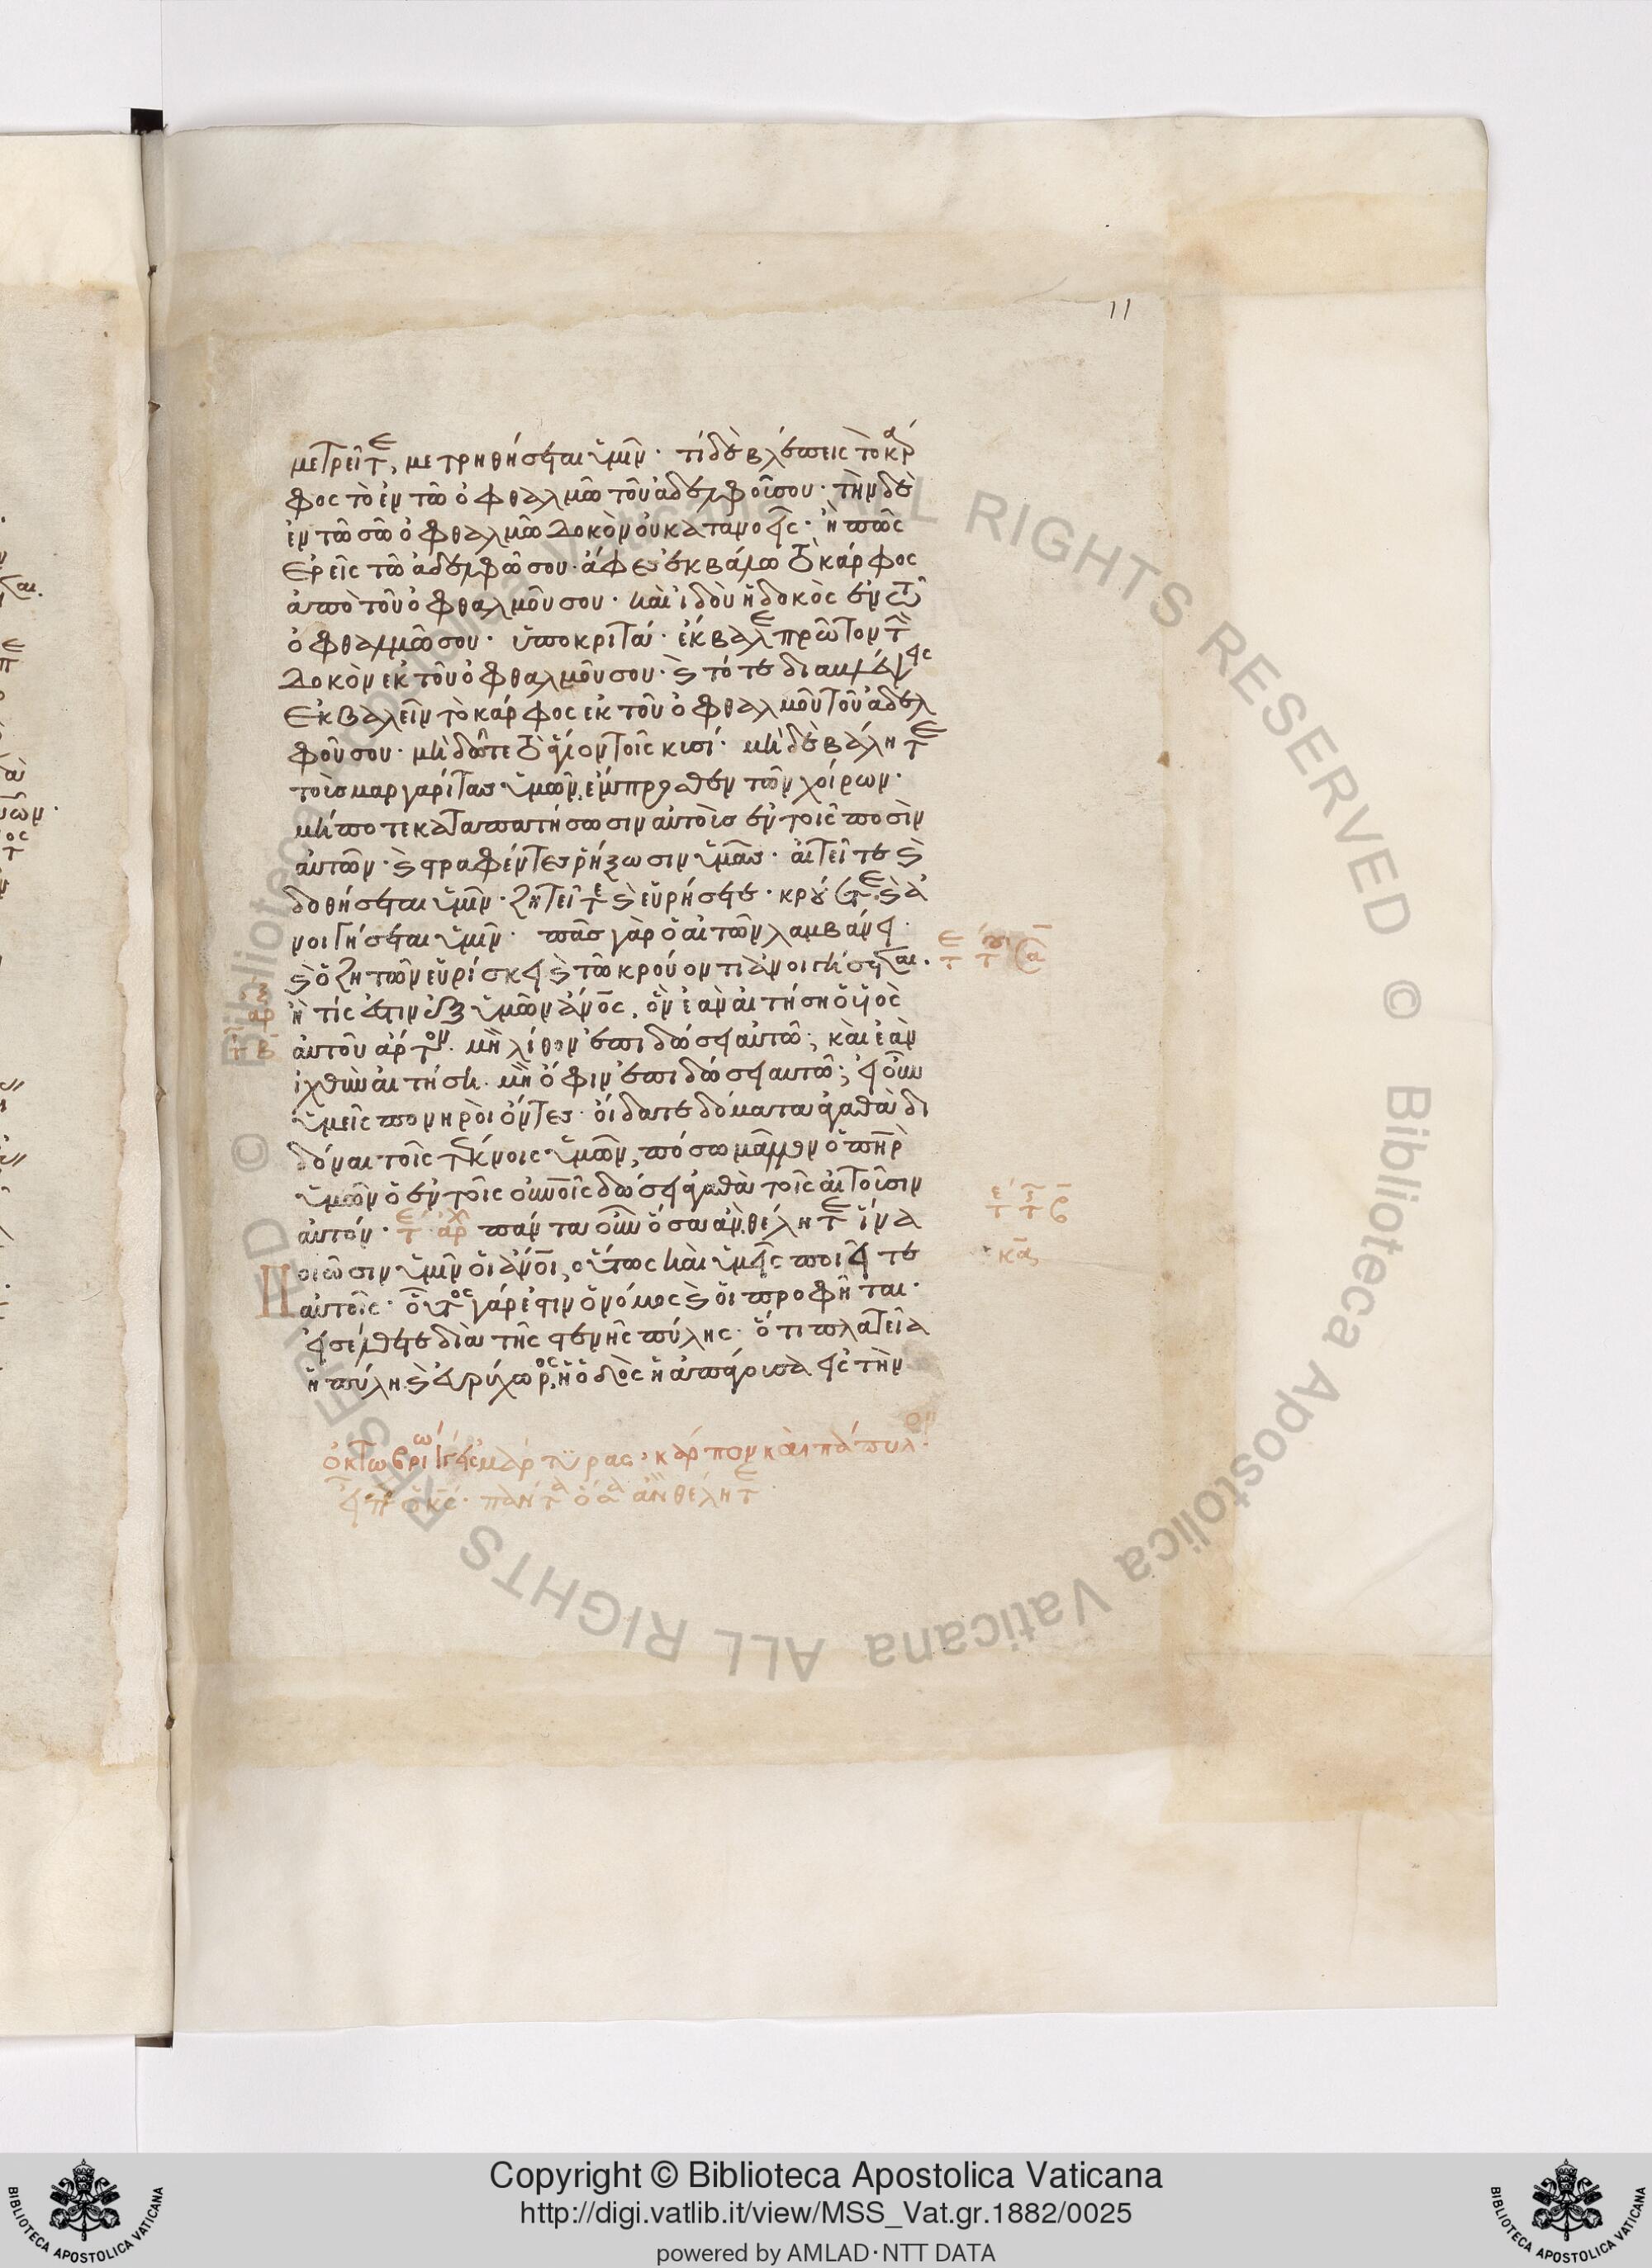 11
μετρεῖτε, μετρηθήσεται ὑμῖν · τί δὲ βλέπεις τὸ κάρ
φος τὸ ἐν τῶ ὀφθαλμῶ τοῦ ἀδελφοῦ σου · τὴν δὲ
ἐν τῶ σῶ ὀφθαλμῶ δοκὸν οὐ κατανοεῖς · ἢ πῶς
ἐρεῖς τῶ ἀδελφῶ σου · ἄφες ἐκβάλω τὸ κάρφος
ἀπὸ τοῦ ὀφθαλμοῦ σου · καὶ ἰδοὺ ἡ δοκὸς ἐν τῶ
ὀφθαλμῶ σου · ὑποκριτά · ἔκβαλε πρῶτον τὴν
δοκὸν ἐκ τοῦ ὀφθαλμοῦ σου · καὶ τότε διαβλέψεις
ἐκβαλεῖν τὸ κάρφος ἐκ τοῦ ὀφθαλμοῦ τοῦ ἀδελ
φοῦ σου · μὴ δῶτε τὸ ἅγιον τοῖς κυσί · μὴ δὲ βάλητε
τοὺς μαργαρίτας ὑμῶν, ἔμπροσθεν τῶν χοίρων ·
μήποτε καταπατήσωσιν αὐτοὺς ἐν τοῖς ποσὶν
αὐτῶν · καὶ στραφέντες ῥήξωσιν ὑμᾶς · αἰτεῖτε καὶ
δοθήσεται ὑμῖν · ζητεῖτε καὶ εὑρήσετε · κρούετε καὶ ἀ
νοιγήσεται ὑμῖν · πᾶς γὰρ ὁ αἰτῶν λαμβάνει ·
καὶ ὁ ζητῶν εὑρίσκει καὶ τῶ κρούοντι ἀνοιγήσεται ·
ἢ τίς ἐστιν ἐξ ὑμῶν ἄνος, ὃν ἐὰν αἰτήση ὁ υἱὸς
αὐτοῦ ἄρτον · μὴ λίθον ἐπιδώσει αὐτῶ; καὶ ἐὰν
ἰχθὺν αἰτήση · μὴ ὄφιν ἐπιδώσει αυτῶ; εἰ οὖν
ὑμεῖς πονηροὶ ὄντες · οἴδατε δόματα ἀγαθὰ δι
δόναι τοῖς τέκνοις ὑμῶν, πόσω μᾶλλον ὁ πηρ
ὑμῶν ὁ ἐν τοῖς οὐνοῖς δώσει ἀγαθὰ τοῖς αἰτοῦσιν
αὐτόν · τε αρχ πάντα οὖν ὅσα ἂν θέλητε ἵνα
ποιῶσιν ὑμῖν οἱ ἄνοι, οὕτως καὶ ὑμεῖς ποιεῖτε
αὐτοῖς · οὗτος γάρ ἐστιν ὁ νόμος καὶ οἱ προφῆται ·
εἰσέλθετε διὰ τῆς στενῆς πύλης · ὅτι πλατεῖα
ἡ πύλη καὶ εὐρύχωρος ἡ ὁδὸς ἡ ἀπάγουσα εἰς τὴν
ὀκτωβρίω ιγ εἰς μάρτυρας · κάρπον καὶ πάπυλον ·
εἶπεν ὁ κς · πάντα ὅσα ἂν θέλητε
κα
Copyright © Biblioteca Apostolica Vaticana
http://digi.vatlib.it/view/MSS_Vat.gr.1882/0025
powered by AMLAD·NTT DATA
BIBLIOTECA APOSTOLICA VATICANA
BIBLIOTECA APOSTOLICA VATICANA
© Biblioteca Apostolica Vaticana ALL RIGHTS RESERVED
© Biblioteca Apostolica Vaticana ALL RIGHTS RESERVED